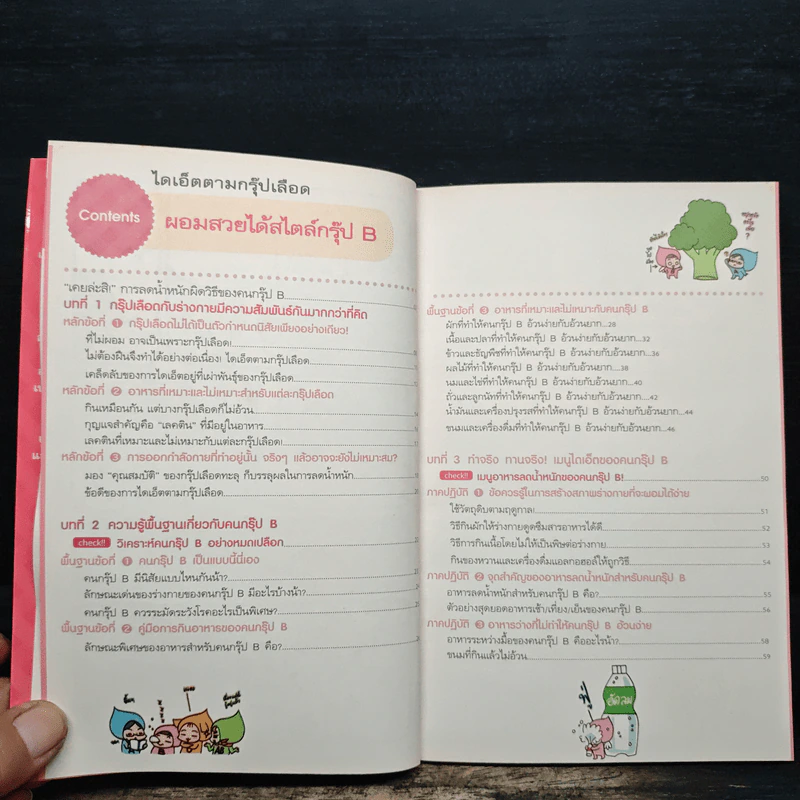 ไดเอ็ตตามกรุ๊ปเลือด
Contents
ผอมสวยได้สไตล์กรุ๊ป B
"เคยล่ะสิ!" การลดน้ำหนักผิดวิธีของคนกรุ๊ป B
บทที่ 1 กรุ๊ปเลือดกับร่างกายมีความสัมพันธ์กันมากกว่าที่คิด
หลักข้อที่ 1 กรุ๊ปเลือดไม่ได้เป็นตัวกำหนดนิสัยเพียงอย่างเดียว!
ที่ไม่ผอม อาจเป็นเพราะกรุ๊ปเลือด!
ไม่ต้องฝืนจึงทำได้อย่างต่อเนื่อง! ไดเอ็ตตามกรุ๊ปเลือด
เคล็ดลับของการไดเอ็ตอยู่ที่เผ่าพันธุ์ของกรุ๊ปเลือด
หลักข้อที่ 2 อาหารที่เหมาะและไม่เหมาะสำหรับแต่ละกรุ๊ปเลือด
กินเหมือนกัน แต่บางกรุ๊ปเลือดก็ไม่อ้วน
กุญแจสำคัญคือ "เลคติน" ที่มีอยู่ในอาหาร
เลคตินที่เหมาะและไม่เหมาะกับแต่ละกรุ๊ปเลือด!
หลักข้อที่ 3 การออกกำลังกายที่ทำอยู่นั้น จริงๆ แล้วอาจจะยังไม่เหมาะสม?
มอง "คุณสมบัติ" ของกรุ๊ปเลือดทะลุ ก็บรรลุผลในการลดน้ำหนัก
ข้อดีของการไดเอ็ตตามกรุ๊ปเลือด
บทที่ 2 ความรู้พื้นฐานเกี่ยวกับคนกรุ๊ป B
check!! วิเคราะห์คนกรุ๊ป B อย่างหมดเปลือก
พื้นฐานข้อที่ 1 คนกรุ๊ป B เป็นแบบนี้นี่เอง
คนกรุ๊ป B มีนิสัยแบบไหนกันน้า?
ลักษณะเด่นของร่างกายของคนกรุ๊ป B มีอะไรบ้างน้า?
คนกรุ๊ป B ควรระมัดระวังโรคอะไรเป็นพิเศษ?
พื้นฐานข้อที่ 2 คู่มือการกินอาหารของคนกรุ๊ป B
ลักษณะพิเศษของอาหารสำหรับคนกรุ๊ป B คือ?
พื้นฐานข้อที่ 3 อาหารที่เหมาะและไม่เหมาะกับคนกรุ๊ป B
ผักที่ทำให้คนกรุ๊ป B อ้วนง่ายกับอ้วนยาก...28
เนื้อและปลาที่ทำให้คนกรุ๊ป B อ้วนง่ายกับอ้วนยาก...32
ข้าวและธัญพืชที่ทำให้คนกรุ๊ป B อ้วนง่ายกับอ้วนยาก...36
ผลไม้ที่ทำให้คนกรุ๊ป B อ้วนง่ายกับอ้วนยาก...38
นมและไข่ที่ทำให้คนกรุ๊ป B อ้วนง่ายกับอ้วนยาก...40
ถั่วและลูกนัทที่ทำให้คนกรุ๊ป B อ้วนง่ายกับอ้วนยาก...42
น้ำมันและเครื่องปรุงรสที่ทำให้คนกรุ๊ป B อ้วนง่ายกับอ้วนยาก...44
ขนมและเครื่องดื่มที่ทำให้คนกรุ๊ป B อ้วนง่ายกับอ้วนยาก...46
บทที่ 3 ทำจริง ทานจริง! เมนูไดเอ็ตของคนกรุ๊ป B
check!! เมนูอาหารลดน้ำหนักของคนกรุ๊ป B! 50
ภาคปฏิบัติ 1 ข้อควรรู้ในการสร้างสภาพร่างกายที่จะผอมได้ง่าย
ใช้วัตถุดิบตามฤดูกาล! 51
วิธีกินผักให้ร่างกายดูดซึมสารอาหารได้ดี 52
วิธีการกินเนื้อโดยไม่ให้เป็นพิษต่อร่างกาย 53
กินของหวานและเครื่องดื่มแอลกอฮอล์ให้ถูกวิธี 54
ภาคปฏิบัติ 2 จุดสำคัญของอาหารลดน้ำหนักสำหรับคนกรุ๊ป B
อาหารลดน้ำหนักสำหรับคนกรุ๊ป B คือ? 55
ตัวอย่างสุดยอดอาหารเช้า/เที่ยง/เย็นของคนกรุ๊ป B 56
ภาคปฏิบัติ 3 อาหารว่างที่ไม่ทำให้คนกรุ๊ป B อ้วนง่าย
อาหารระหว่างมื้อของคนกรุ๊ป B คืออะไรน้า? 58
ขนมที่กินแล้วไม่อ้วน 59
อัดลม